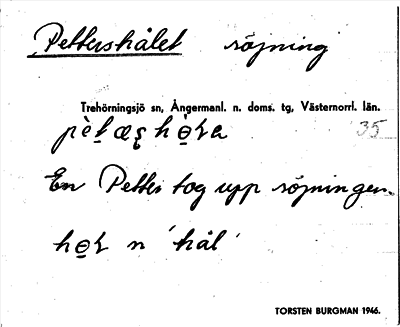 Pettershålet röjning
Trehörningsjö sn, Ångermanl. n. doms. tg, Västernorrl. län.
35
En Petter tog upp röjningen.
n 'hål'
TORSTEN BURGMAN 1946.